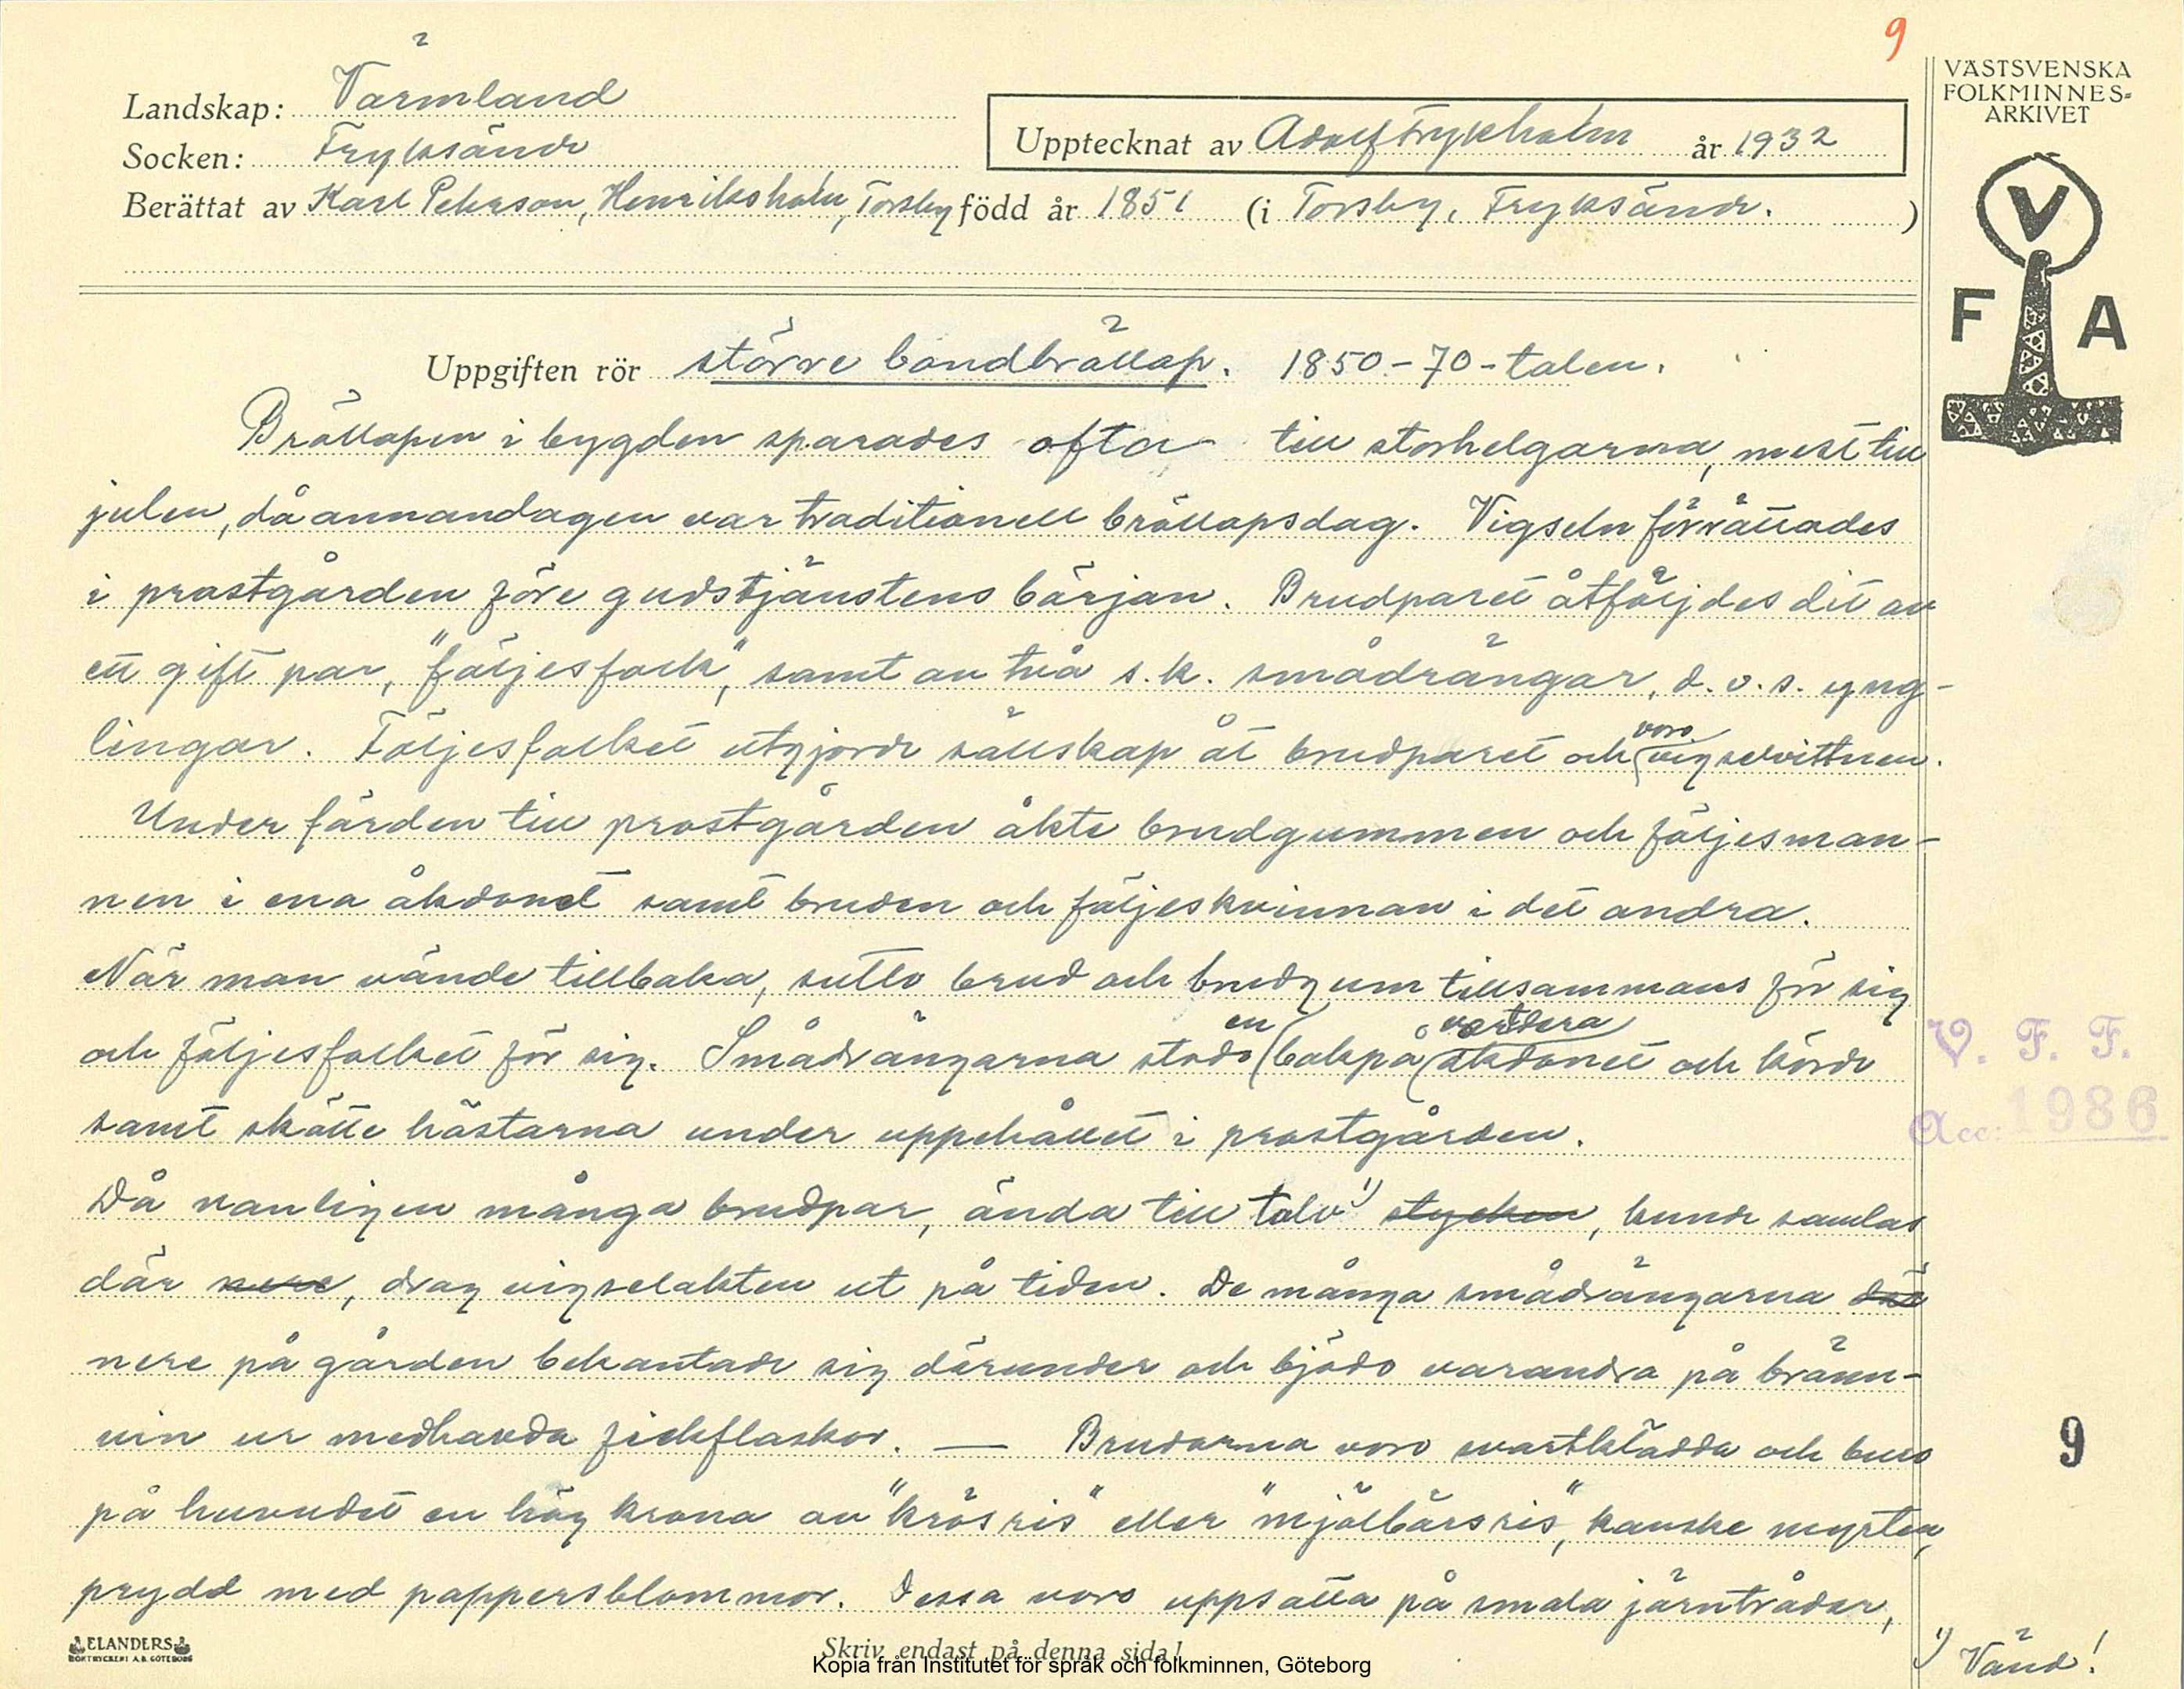 9
VÄSTSVENSKA
FOLKMINNES=
ARKIVET
Landskap: Värmland
Socken: Fryksände
Upptecknat av Adolf Frykholm år 1932
Berättat av Karl Peterson, Henriksholm, Torsby född år 1851 (i Torsby, Fryksände. )
V
F A
Uppgiften rör större bondbröllop. 1850-70-talen.
Bröllopen i bygden sparades ofta till storhelgarna, mest till
julen, då annandagen var traditionell bröllopsdag. Vigseln förrättades
i prostgården före gudstjänstens början. Brudparet åtföljdes dit av
ett gift par, "följesfolk", samt av två s.k. smådrängar, d.v.s. yng-
lingar. Följesfolket utgjorde sällskap åt brudparet och voro vigselvittnen.
Under färden till prostgården åkte brudgummen och följesman-
nen i ena åkdonet samt bruden och följeskvinnan i det andra.
När man vände tillbaka, sutto brud och brudgum tillsammans för sig
och följesfolket för sig. Smådrängarna stodo en bakpå vartdera åkdonet och körde
samt skötte hästarna under uppehållet i prostgården.
Då vanligen många brudpar, ända till tolv 1) stycken, kunde samlas
där nere, drog vigselakten ut på tiden. De många smådrängarna där
nere på gården bekantade sig därunder och bjödo varandra på bränn-
vin ur medhavda fickflaskor. — Brudarna voro svartklädda och buro
på huvudet en hög krona av "krösris" eller "mjölbärsris", kanske myrten,
prydd med pappersblommor. Dessa voro uppsatta på smala järntrådar,
V. F. F.
Acc: 1986
9
ELANDERS
BOKTRYCKERI A.B. GÖTEBORG
Skriv endast på denna sida!
Kopia från Institutet för språk och folkminnen, Göteborg
1) Vänd!